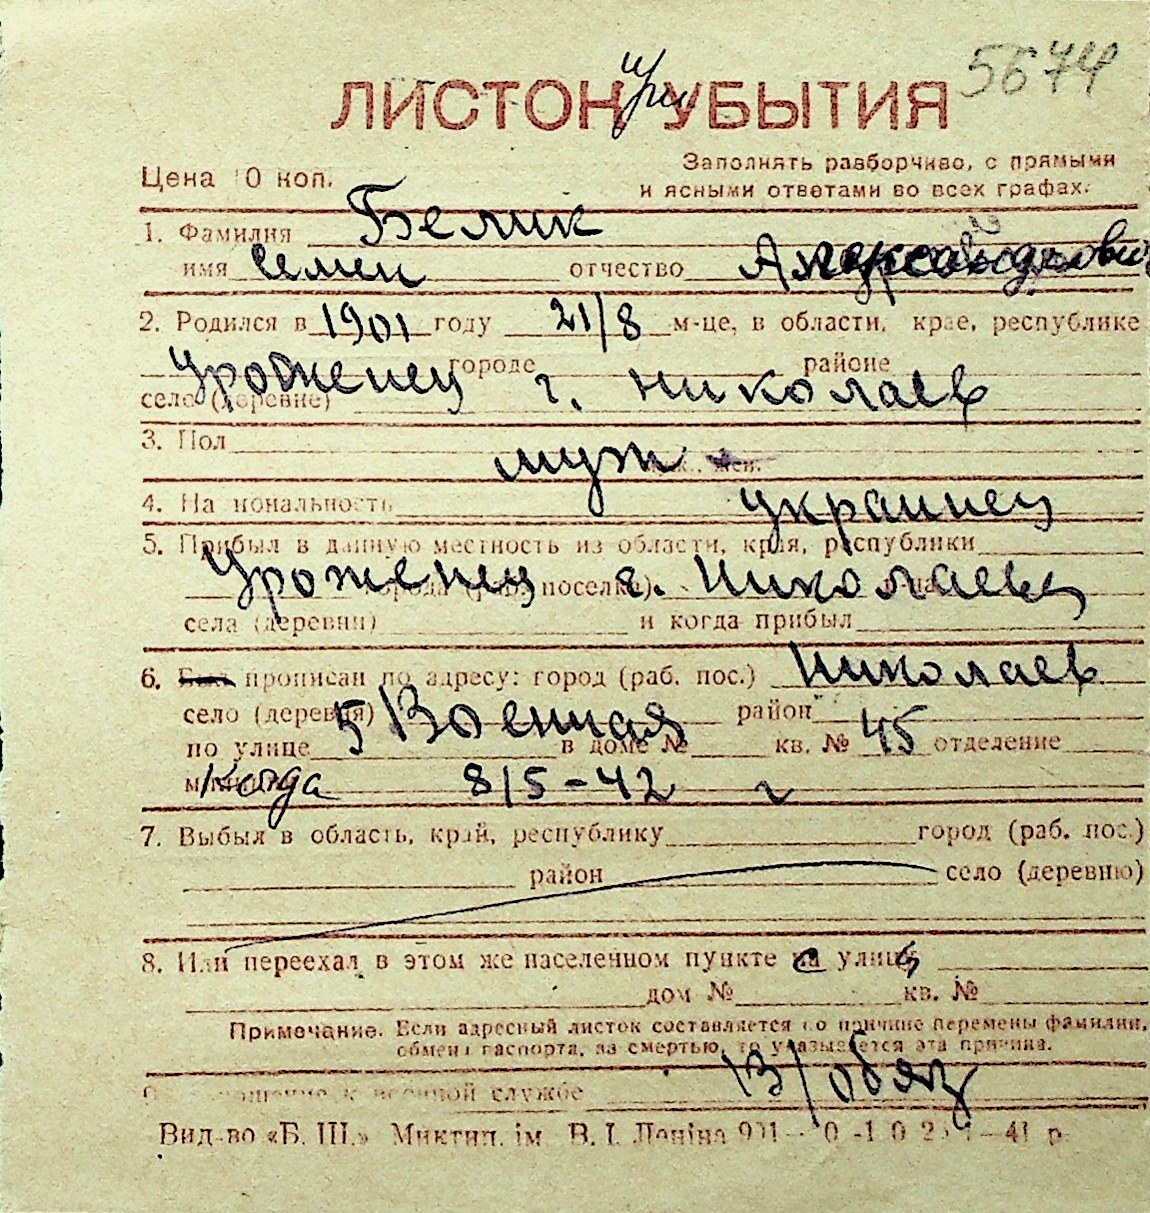 5674
ЛИСТОК при УБЫТИЯ
Цена 10 коп.
Заполнять разборчиво, с прямыми
и ясными ответами во всех графах.
1. Фамилия Белик
имя Семен отчество Александрович
2. Родился в 1901 году 21/8 м-це, в области, крае, республике
городе районе
Уроженец г. Николаев
село (деревне)
3. Пол муж
муж., жен.
4. Национальность украинец
5. Прибыл в данную местность из области, края, республики
Уроженец г. Николаева
города (раб. поселка)
села (деревни) и когда прибыл
6. Был прописан по адресу: город (раб. пос.) Николаев
село (деревня) район
по улице 5 Военная в доме № кв. № 45 отделение
милиции Когда 8/5-42 г
7. Выбыл в область, край, республику город (раб. пос.)
район село (деревню)
8. Или переехал в этом же населенном пункте на улицу
дом № кв. №
Примечание. Если адресный листок составляется по причине перемены фамилии,
обмена паспорта, за смертью, то указывается эта причина.
9. Отношение к военной службе В/обяз
Вид-во «Б. Ш.» Миктип. ім. В. І. Леніна 41 р.